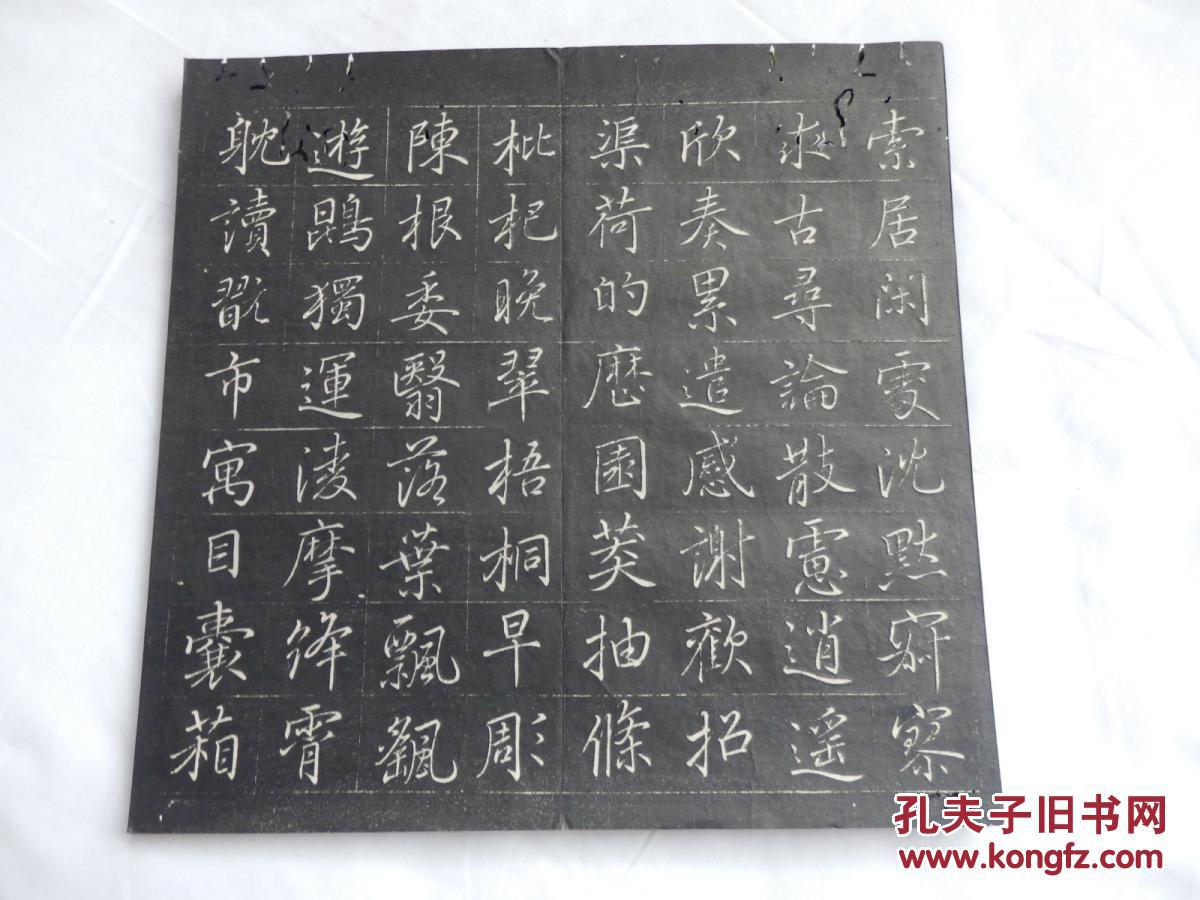 索居閑處沈默寂寥
求古尋論散慮逍遥
欣奏累遣慼謝歡招
渠荷的歷園莽抽條
枇杷晚翠梧桐早彫
陳根委翳落葉飄颻
遊鵾獨運淩摩絳霄
耽讀翫市寓目囊箱
孔夫子旧书网
www.kongfz.com